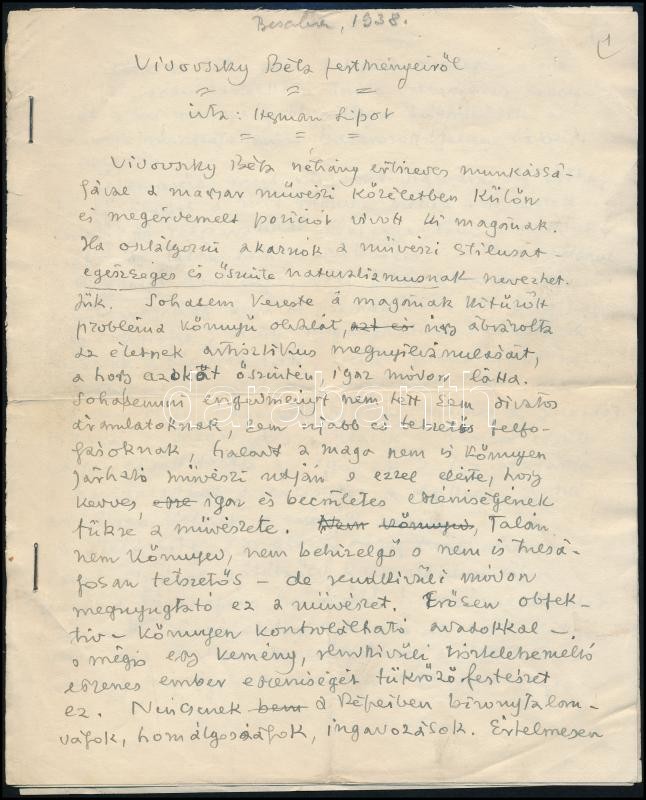 1938.
1
Vidovszky Béla festményeiről
írta: Herman Lipót
Vidovszky Béla néhány évtizedes munkássá-
gával a magyar művészi közéletben külön
és megérdemelt poziciót vivott ki magának.
Ha osztályozni akarnók a művészi stilusát -
egészséges és őszinte naturalizmusnak nevezhet-
jük. Sohasem kereste a magának kitűzött
probléma könnyű oldalát, azt és úgy ábrázolta
az életnek artisztikus megnyilvánulásait,
a hogy azokat őszintén igaz módon látta.
Sohasemum engedményt nem tett sem divatos
áramlatoknak, sem újabb és tetszetős felfo-
gásoknak, haladt a maga nem is könnyen
járható művészi utján s ezzel elérte, hogy
kedves, igaz és becsületes egyéniségének
tükre a művészete. Nem könnyed, Talán
nem könnyed, nem behizelgő s nem is tulsá-
gosan tetszetős - de rendkivüli módon
megnyugtató ez a művészet. Erősen objek-
tiv - könnyen kontrolálható adatokkal -,
s mégis egy kemény, rendkivüli tiszteletreméltó
egyenes ember egyéniségét tükröző festészet
ez. Nincsenek a képeiben bizonytalan-
ságok, homályosságok, ingadozások. Értelmesen
databanth